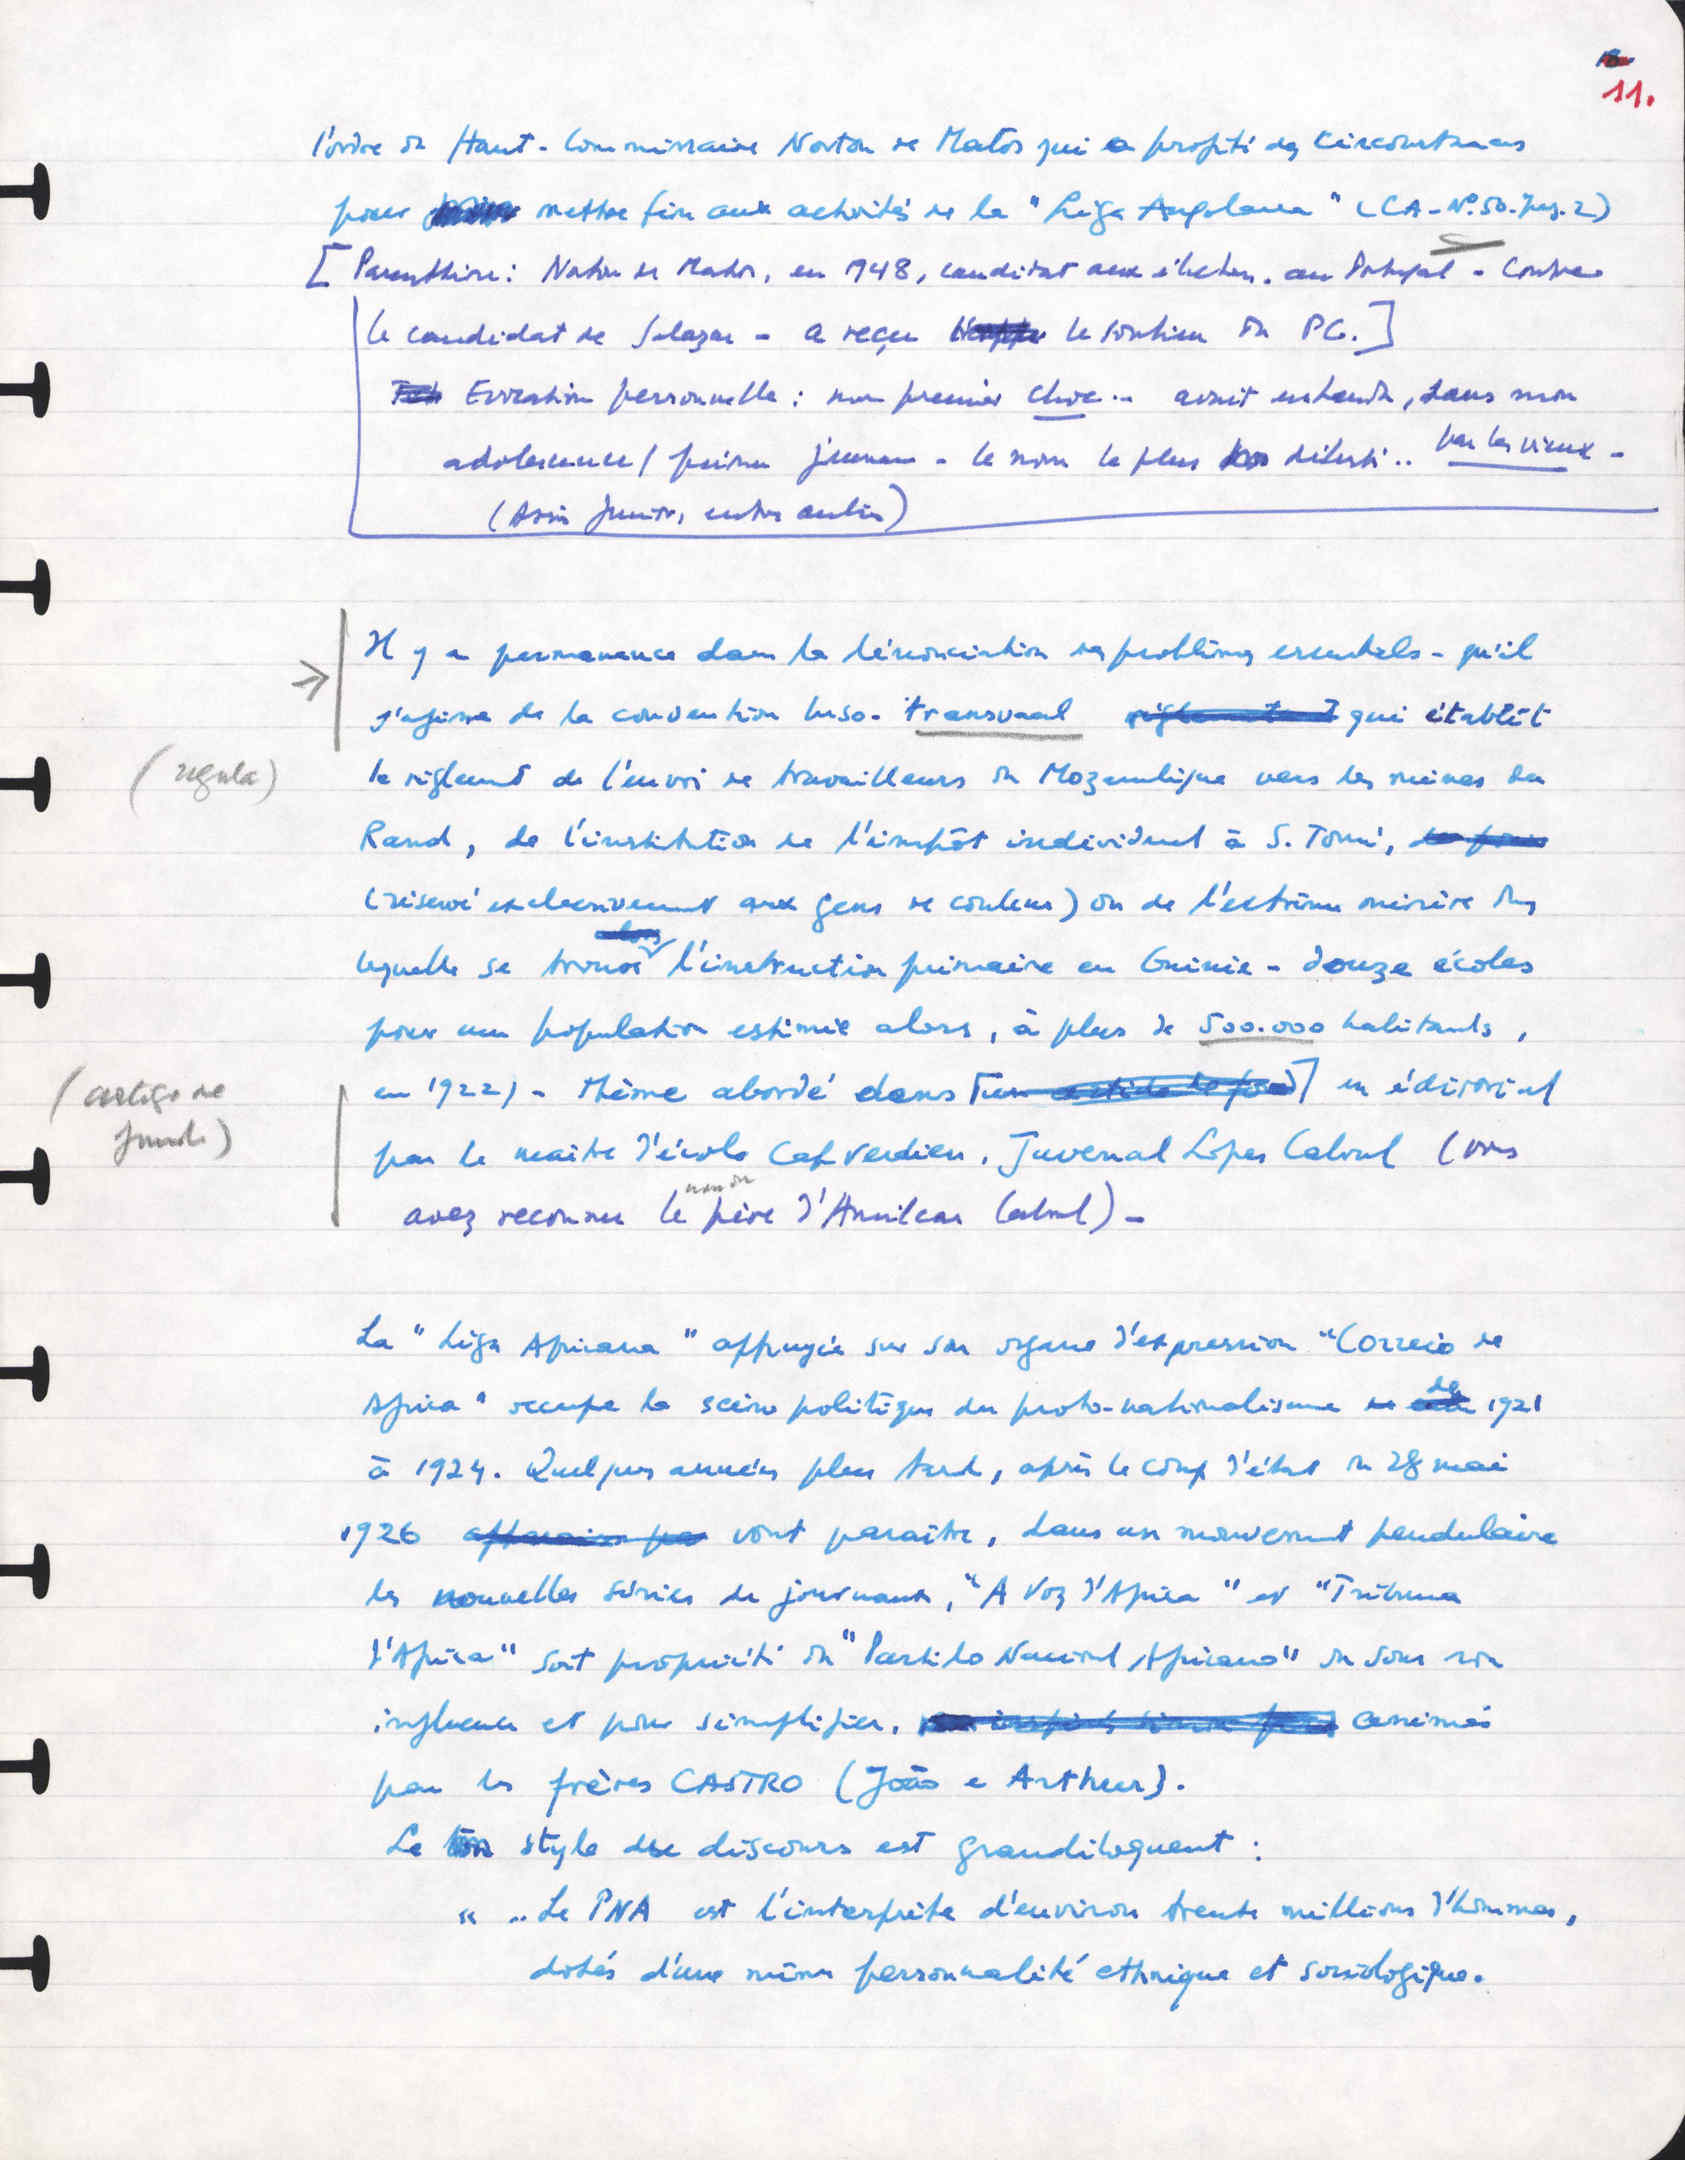 11.
l'ordre du Haut-Commissaire Norton de Matos qui a profité des circonstances
pour mettre fin aux activités de la "Liga Angolana" (CA-Nº.50-pag.2)
[Parenthèse: Norton de Matos, en 1948, candidat aux élections. au Portugal - contre
le candidat de Salazar - a reçu le soutien du PC.]
Evocation personnelle: mon premier choc.. avait entendu, dans mon
adolescence / prime jeunesse - le nom le plus détesté.. par les vieux -
(Assis Junior, entre autres)
Il y a permanence dans la dénonciation des problèmes essentiels - qu'il
s'agisse de la convention luso-transvaal qui établit
(regula)
le règlement de l'envoi de travailleurs du Mozambique vers les mines du
Rand, de l'institution de l'impôt individuel à S. Tomé,
(réservé exclusivement aux gens de couleur) ou de l'extrême misère dans
laquelle se trouve l'instruction primaire en Guinée - douze écoles
pour une population estimée alors, à plus de 500.000 habitants,
(artigo de
fundo)
en 1922) - Thème abordé dans [un article de fond] en éditorial
par le maître d'école Cap Verdien, Juvenal Lopes Cabral (vous
avez reconnu le père d'Amilcar Cabral) -
La "Liga Africana" appuyée sur son organe d'expression "Correio de
Africa" occupe la scène politique du proto-nationalisme de 1921
à 1924. Quelques années plus tard, après le coup d'état du 28 mai
1926 vont paraître, dans un mouvement pendulaire
les nouvelles séries de journaux, "A Voz d'Africa" et "Tribuna
d'Africa" soit propriété du "Partido Nacional Africano" ou sous son
influence et pour simplifier, animés
par les frères CASTRO (João e Arthur).
Le style du discours est grandiloquent:
"..Le PNA est l'interprète d'environ trente millions d'hommes,
dotés d'une même personnalité ethnique et sociologique.